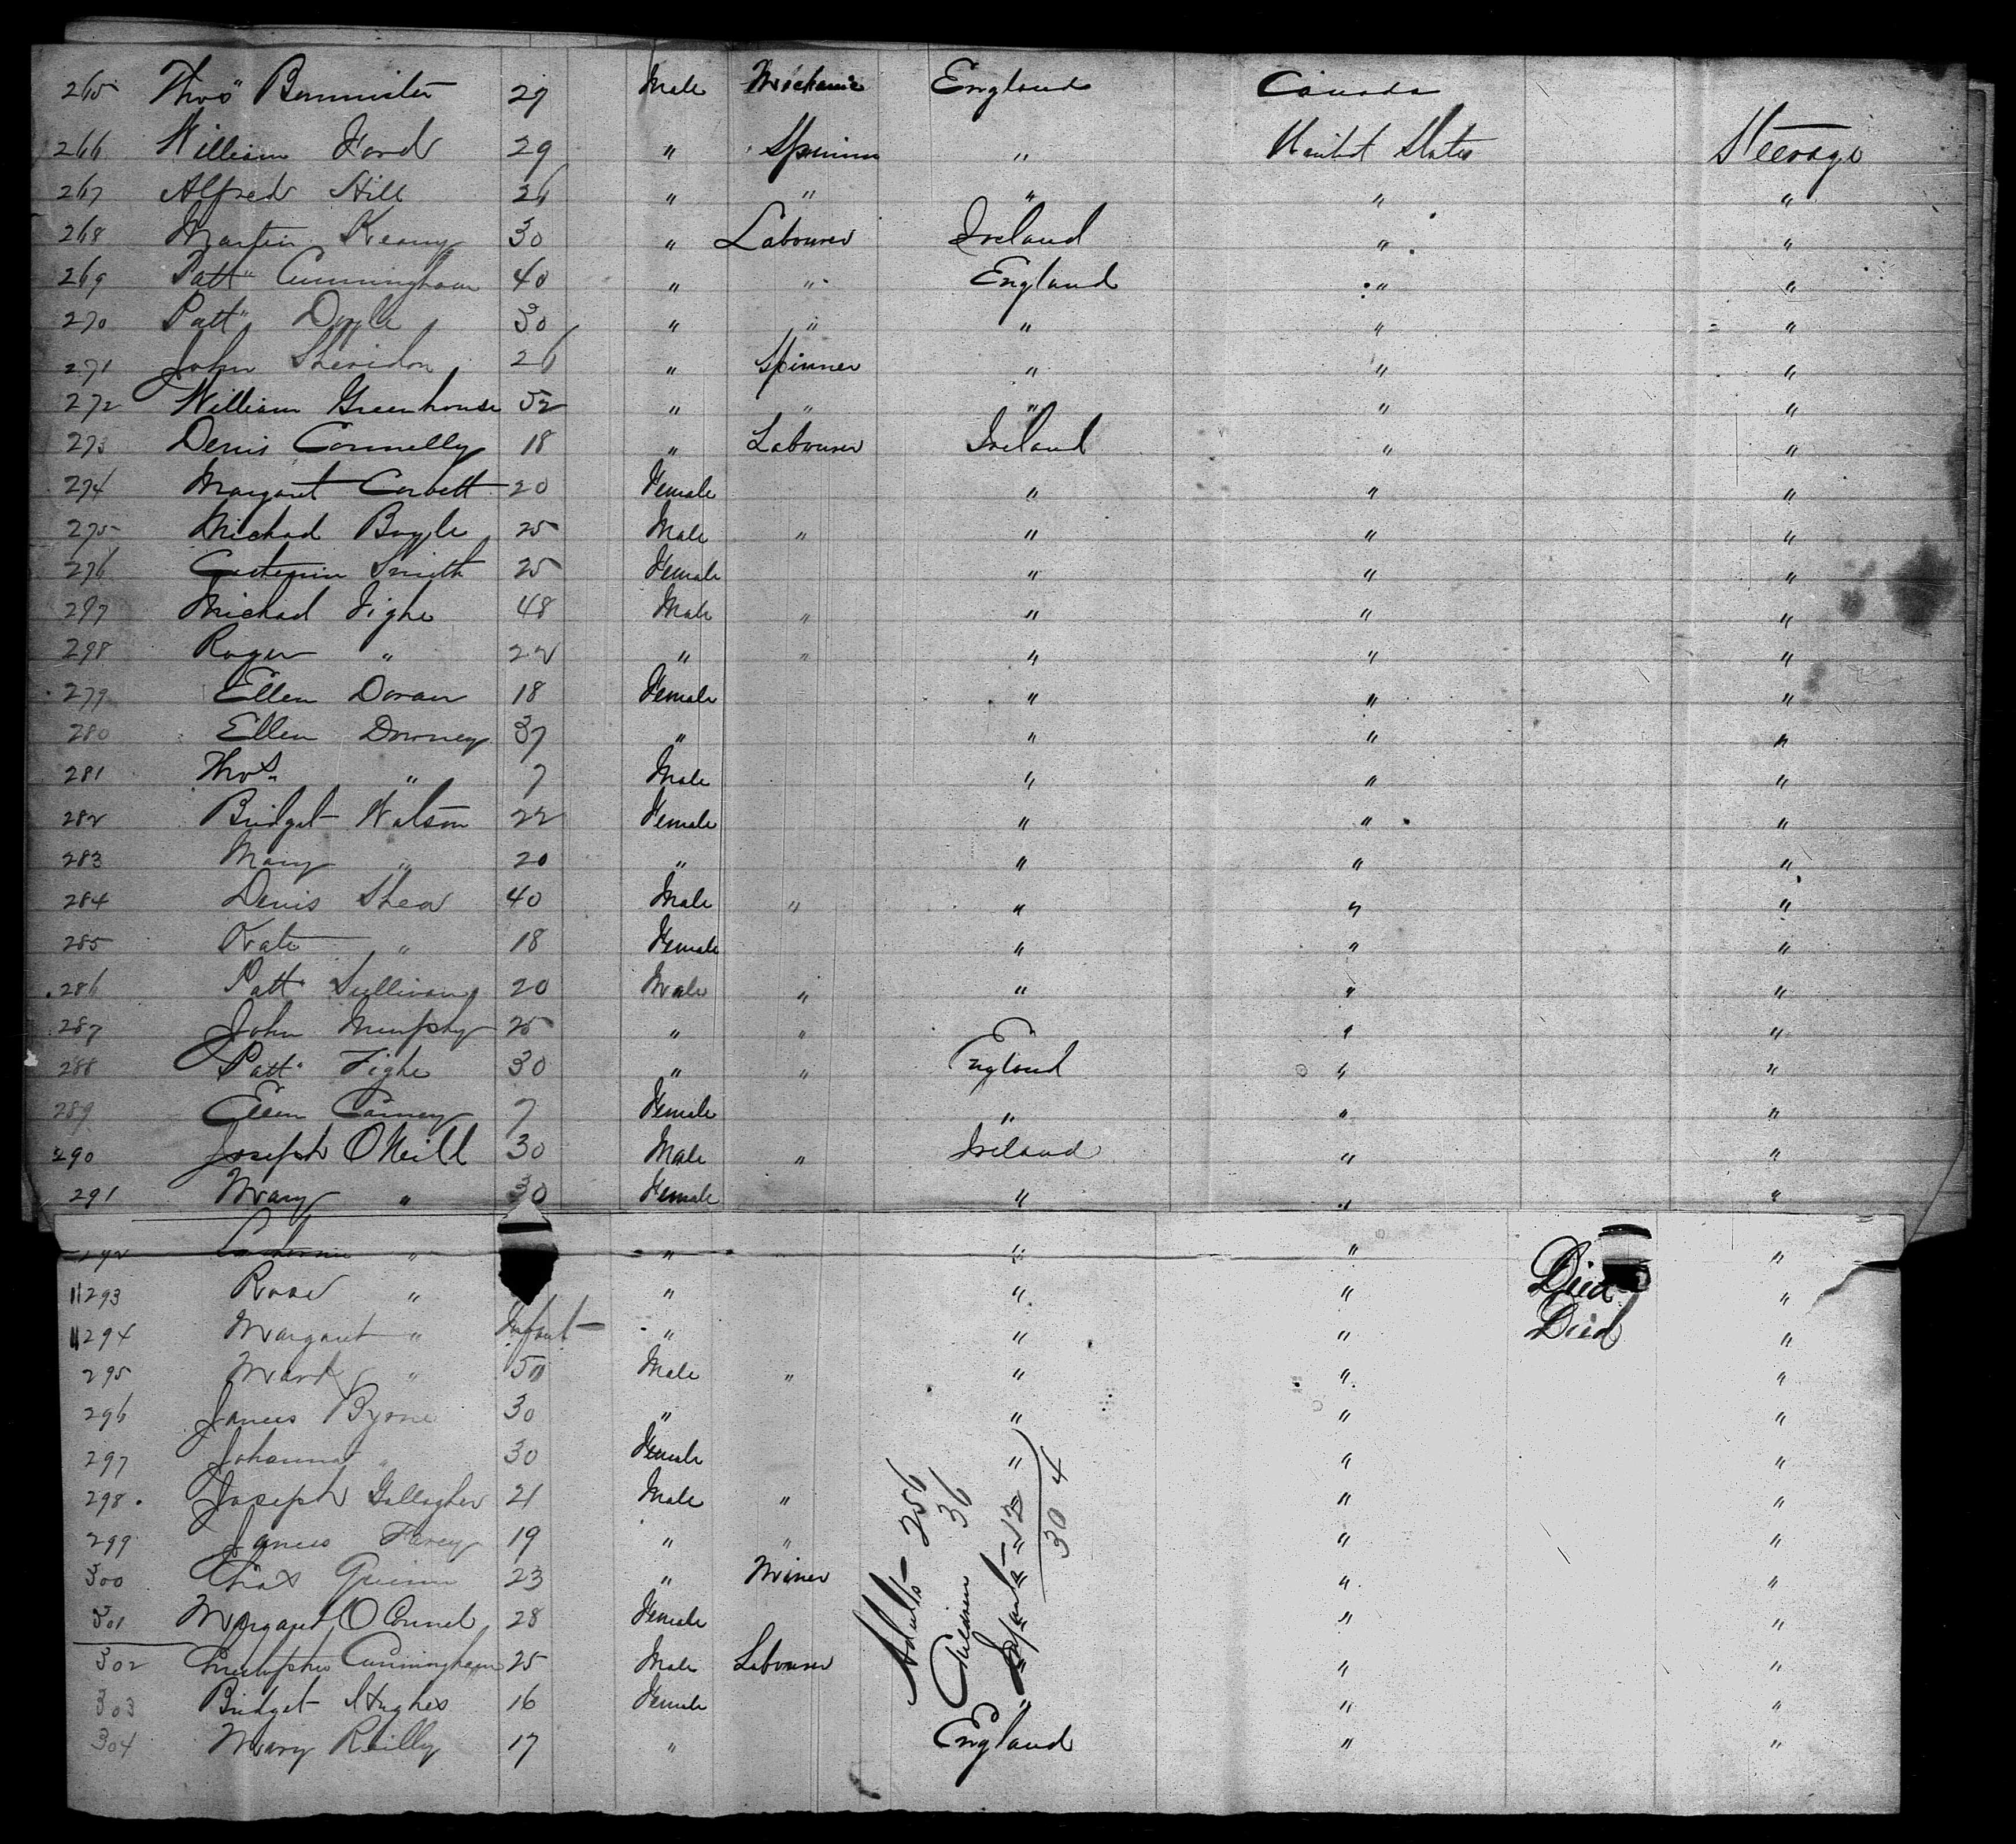 265 Thos" Bannister 29 Male Mechanic England Canada
266 William Ford 29 " Spinner " United States Steerage
267 Alfred Hill 26 " " " " "
268 Martin Keany 30 " Labourer Ireland " "
269 Patt" Cunningham 40 " " England " "
270 Patt" Doyle 30 " " " " "
271 John Sheridan 26 " Spinner " " "
272 William Greenhouse 52 " " " " "
273 Denis Connelly 18 " Labourer Ireland " "
274 Margaret Corbett 20 Female " " "
275 Michael Boyle 25 Male " " " "
276 Catherin Smith 25 Female " " "
297 Michael Tighe 48 Male " " " "
298 Roger " 22 " " " " "
279 Ellen Doran 18 Female " " "
280 Ellen Downey 37 " " " "
281 Thos " 7 Male " " "
282 Bridget Watson 22 Female " " "
283 Mary " 20 " " " "
284 Denis Shea 40 Male " " " "
285 Kate " 18 Female " " "
286 Patt" Sullivan 20 Male " " " "
287 John Murphy 25 " " " "
288 Patt" Tighe 30 " " England " "
289 Ellen Carney 7 Female " " "
290 Joseph O'Neill 30 Male " Ireland " "
291 Mary " 30 Female " " "
292 Catherine " " " " "
293 Rose " " " " Died "
294 Margaret " Infant " " " Died "
295 Mark " 50 Male " " " "
296 James Byrne 30 " " " "
297 Johanna " 30 Female " " "
298 Joseph Gallagher 21 Male " " "
299 James 19 " " " "
300 Chas Quinn 23 " Miner " "
301 Margaret O'Connel 28 Female " "
302 Christopher Cunningham 25 Male Labourer " " "
303 Bridget Hughes 16 Female " " "
304 Mary Reilly 17 " England " "
Adults 256
Children 36
Infants 12
304